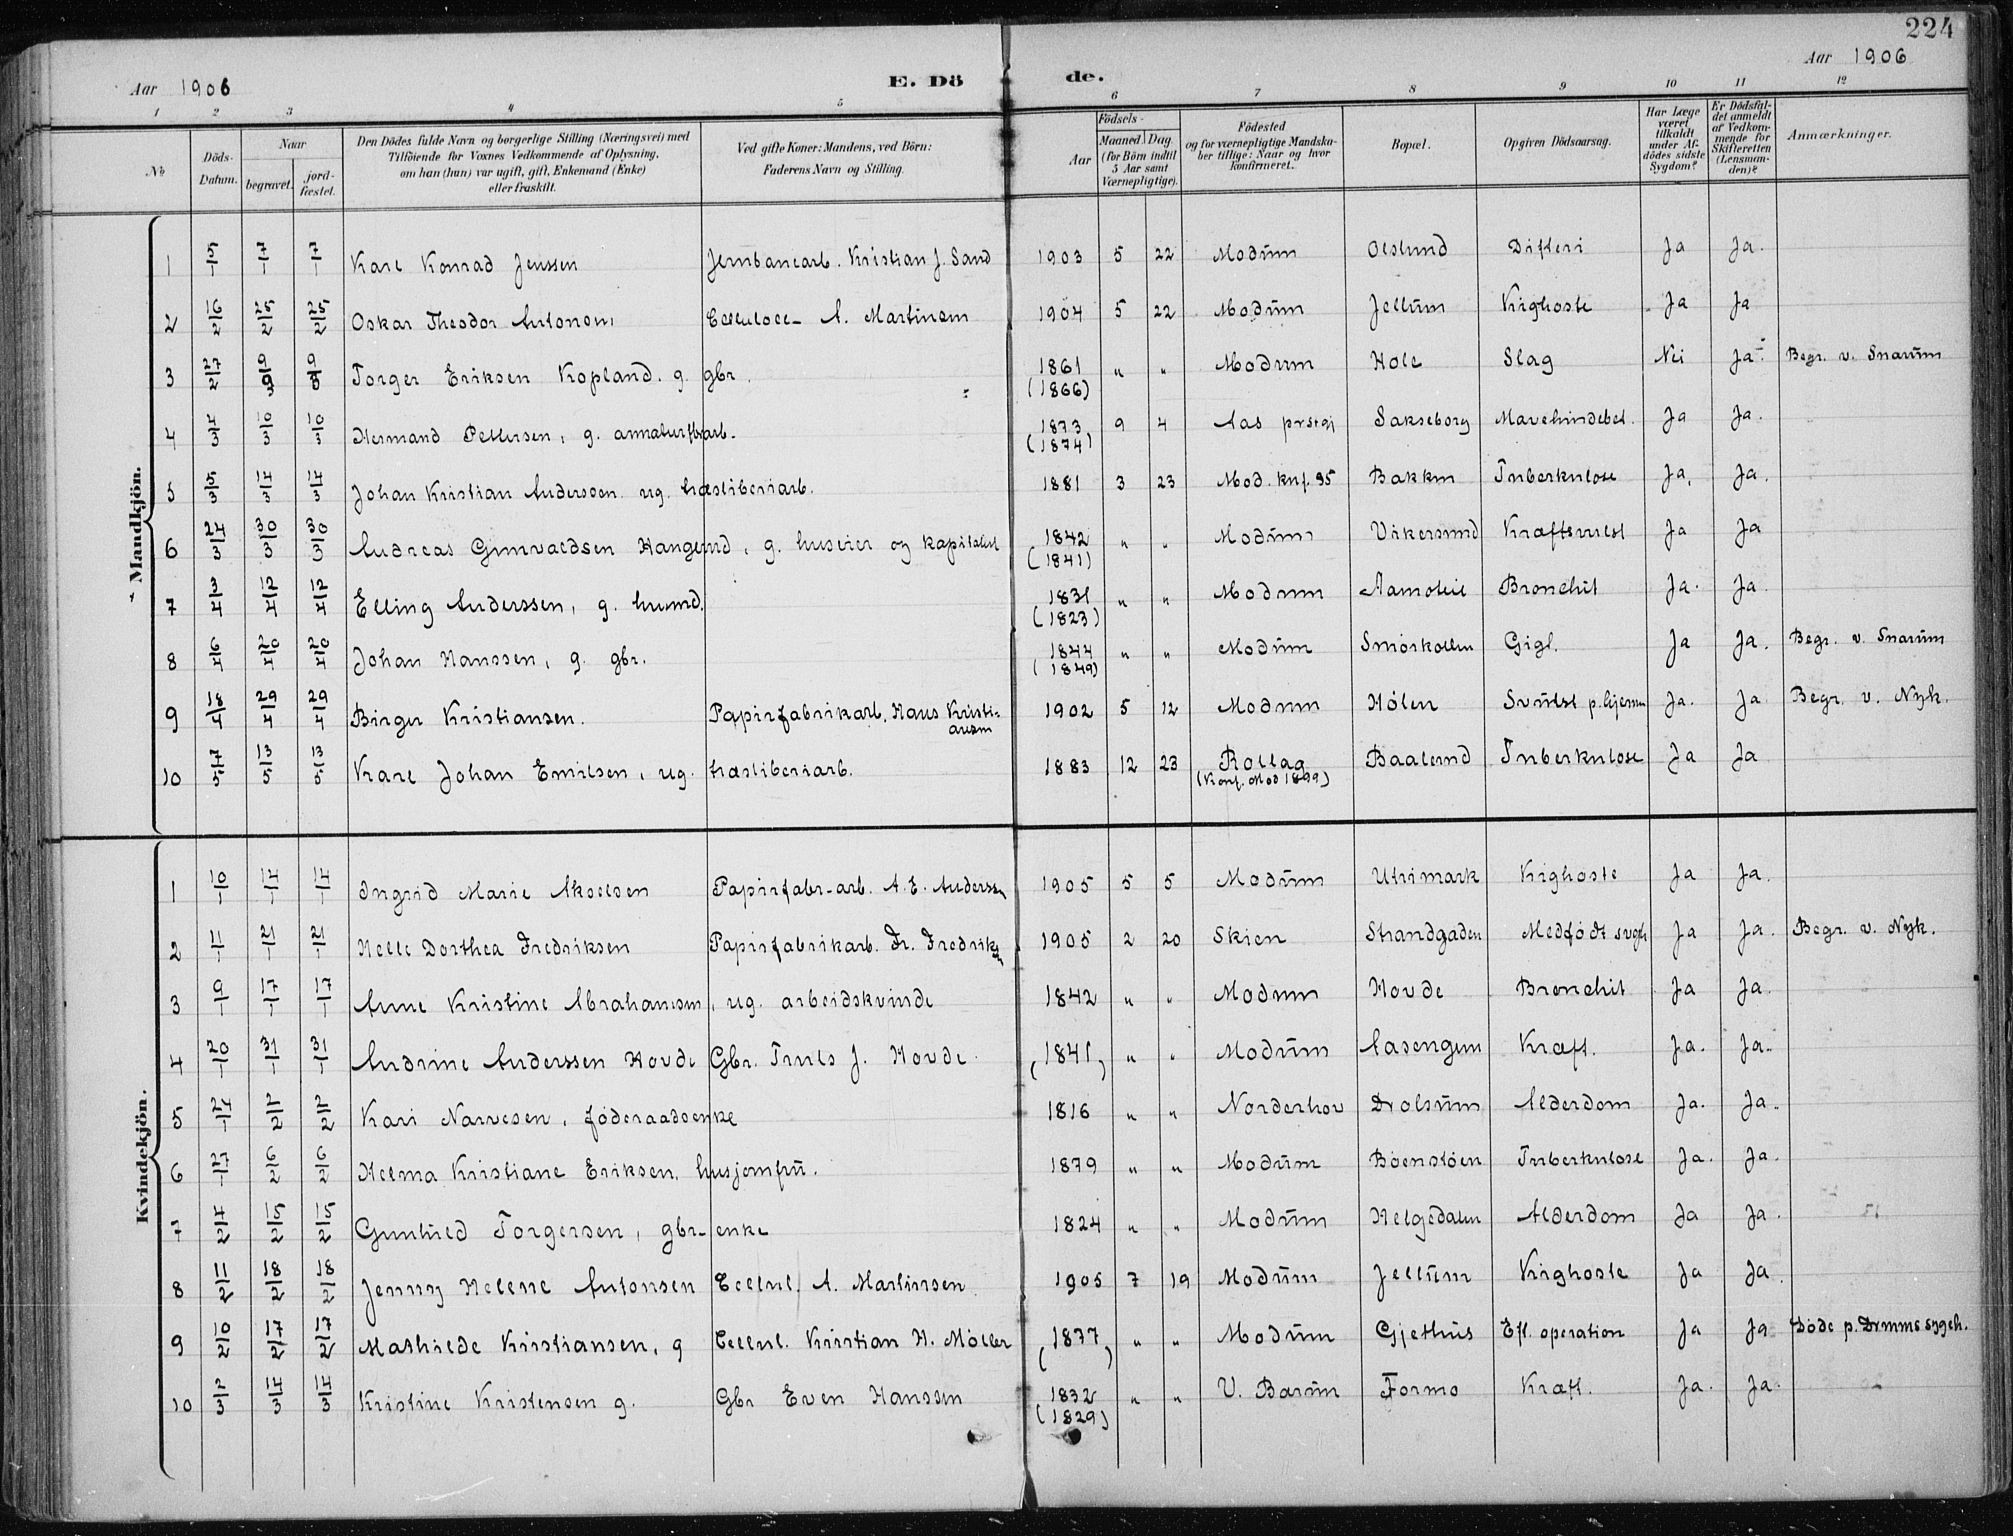 224
Aar 1906 E. Dö de. Aar 1906
1 2 3 4 5 6 7 8 9 10 11 12
No
Döds-Datum.
Naar
begravet.
jord-fæstet.
Den Dödes fulde Navn og borgerlige Stilling (Næringsvei) med
Tilföiende for Voxnes Vedkommende af Oplysning,
om han (hun) var ugift, gift, Enkemand (Enke)
eller fraskilt.
Ved gifte Koner: Mandens, ved Börn:
Faderens Navn og Stilling.
Födsels-
Aar
Maaned Dag
(for Börn indtil
5 Aar samt
Værnepligtige).
Födested
og for værnepligtige Mandska-
ber tillige: Naar og hvor
konfirmeret.
Bopæl.
Opgiven Dödsaarsag.
Har Læge
været
tilkaldt
under Af-
dödes sidste
Sygdom?
Er Dödsfal-
det anmeldt
af Vedkom-
mende for
Skifteretten
(Lensman-
den)?
Anmærkninger.
Mandkjön.
1 5/1 7/1 7/1 Karl Konrad Jenssen Jernbanearb. Kristian J. Sand 1903 5 22 Modum Oeslund Difteri Ja Ja.
2 16/2 25/2 25/2 Oskar Theodor Antonsen A. Martinsen 1904 5 22 Modum Jellum Kighoste Ja Ja
3 27/2 9/3 9/3 Torger Eriksen Kopland. g. gbr. 1861 " " Modum Hole Slag Nei Ja. Begr. v. Snarum
(1866)
4 4/3 10/3 10/3 Hermand Pettersen, g. 1873 9 4 Aas prstgj Sakseborg Mavehindebet. Ja Ja.
(1874)
5 5/3 14/3 14/3 Johan Kristian Anderssen ug. træsliberiarb. 1881 3 23 Mod. knf. 95 Bakken Tuberkulose Ja, Ja.
6 24/3 30/3 30/3 Andreas Gunvaldsen Haugerud, g. huseier og kapitalist 1842 " " Modum Vikersund Kræftsvulst Ja Ja
(1841)
7 3/4 12/4 12/4 Elling Anderssen, g. husmd. 1831 " " Modum Aamodt Bronchit Ja. Ja.
(1823)
8 6/4 20/4 20/4 Johan Hanssen, g. gbr. 1844 " " Modum Smørkollen Gigt. Ja Ja. Begr. v. Snarum
(1849)
9 18/4 29/4 29/4 Birger Kristiansen. Papirfabrikarb. Hans Kristi-
ansen 1902 5 12 Modum Hølen Svulst p. hjernen Ja. Ja. Begr. v. Nyk.
10 7/5 13/5 13/5 Karl Johan Emilsen, ug. træsliberiarb. 1883 12 23 Rollag Baalerud Tuberkulose Ja Ja
(Konf. Mod 1899)
Kvindekjön.
1 10/1 14/1 14/1 Ingrid Marie Akselsen Papirfabr-arb. A. E. Anderssen 1905 5 5 Modum Utrimark Kighoste Ja Ja.
2 11/1 21/1 21/1 Helle Dorthea Fredriksen Papirfabrikarb. Fr. Fredriksen 1905 2 20 Skien Strandgaden Medfødt svagh Ja Ja. Begr. v. Nyk.
3 9/1 17/1 17/1 Anne Kristine Abrahamsen, ug. arbeidskvinde 1842 " " Modum Hovde Bronchit Ja Ja.
4 20/1 31/1 31/1 Andrine Anderssen Hovde Gbr. Truls J. Hovde. (1841) " " Modum Aasengen Kræft. Ja. Ja.
5 24/1 2/2 2/2 Kari Narvesen, føderaadsenke 1816 " " Norderhov Drolsum Alderdom Ja. Ja.
6 27/1 6/2 6/2 Helma Kristiane Eriksen, husjomfru. 1879 " " Modum Bøenstøen Tuberkulose Ja. Ja.
7 4/2 15/2 15/2 Gunhild Torgersen, gbr-enke 1824 " " Modum Helgedalen Alderdom Ja Ja.
8 11/2 18/2 18/2 Jenny Helene Antonsen Cellul. A. Martinsen 1905 7 19 Modum Jellum Kighoste Ja Ja.
9 10/2 17/2 17/2 Mathilde Kristiansen, g Cellul. Kristian H. Møller (1877) " " Modum Gjethus Eft. operation Ja Ja Døde p. Drmms sygeh.
10 2/3 14/3 14/3 Kristine Kristensen g. Gbr Even Hanssen 1832 " " V. Bærum Formo Kræft. Ja. Ja.
(1829)